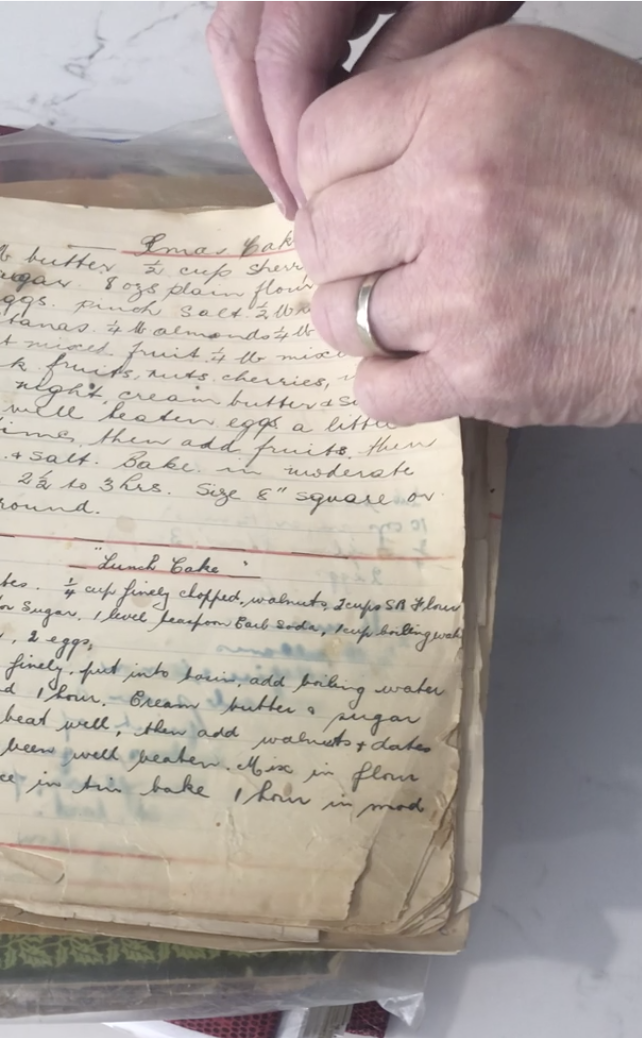 Xmas Cak
lb butter ½ cup sherr
ugar. 8 ozs plain flour
ggs. pinch salt. ½ lb
tanas. ¼ lb almonds ¼ lb
t mixed fruit. ¼ lb mixe
k fruits, nuts, cherries,
night, cream butter & su
well beaten eggs a little
ime, then add fruits then
. & salt. Bake in moderate
2½ to 3 hrs. Size 8" square or
round.
"Lunch Cake"
tes. ¼ cup finely chopped, walnuts, 2 cups SR Flour
or Sugar, 1 level teaspoon Carb Soda, 1 cup boiling wat
, 2 eggs,
finely, put into basin, add boiling water
d 1 hour. Cream butter & sugar
beat well, then add walnuts & dates
been well beaten. Mix in flour
ce in tin bake 1 hour in mod